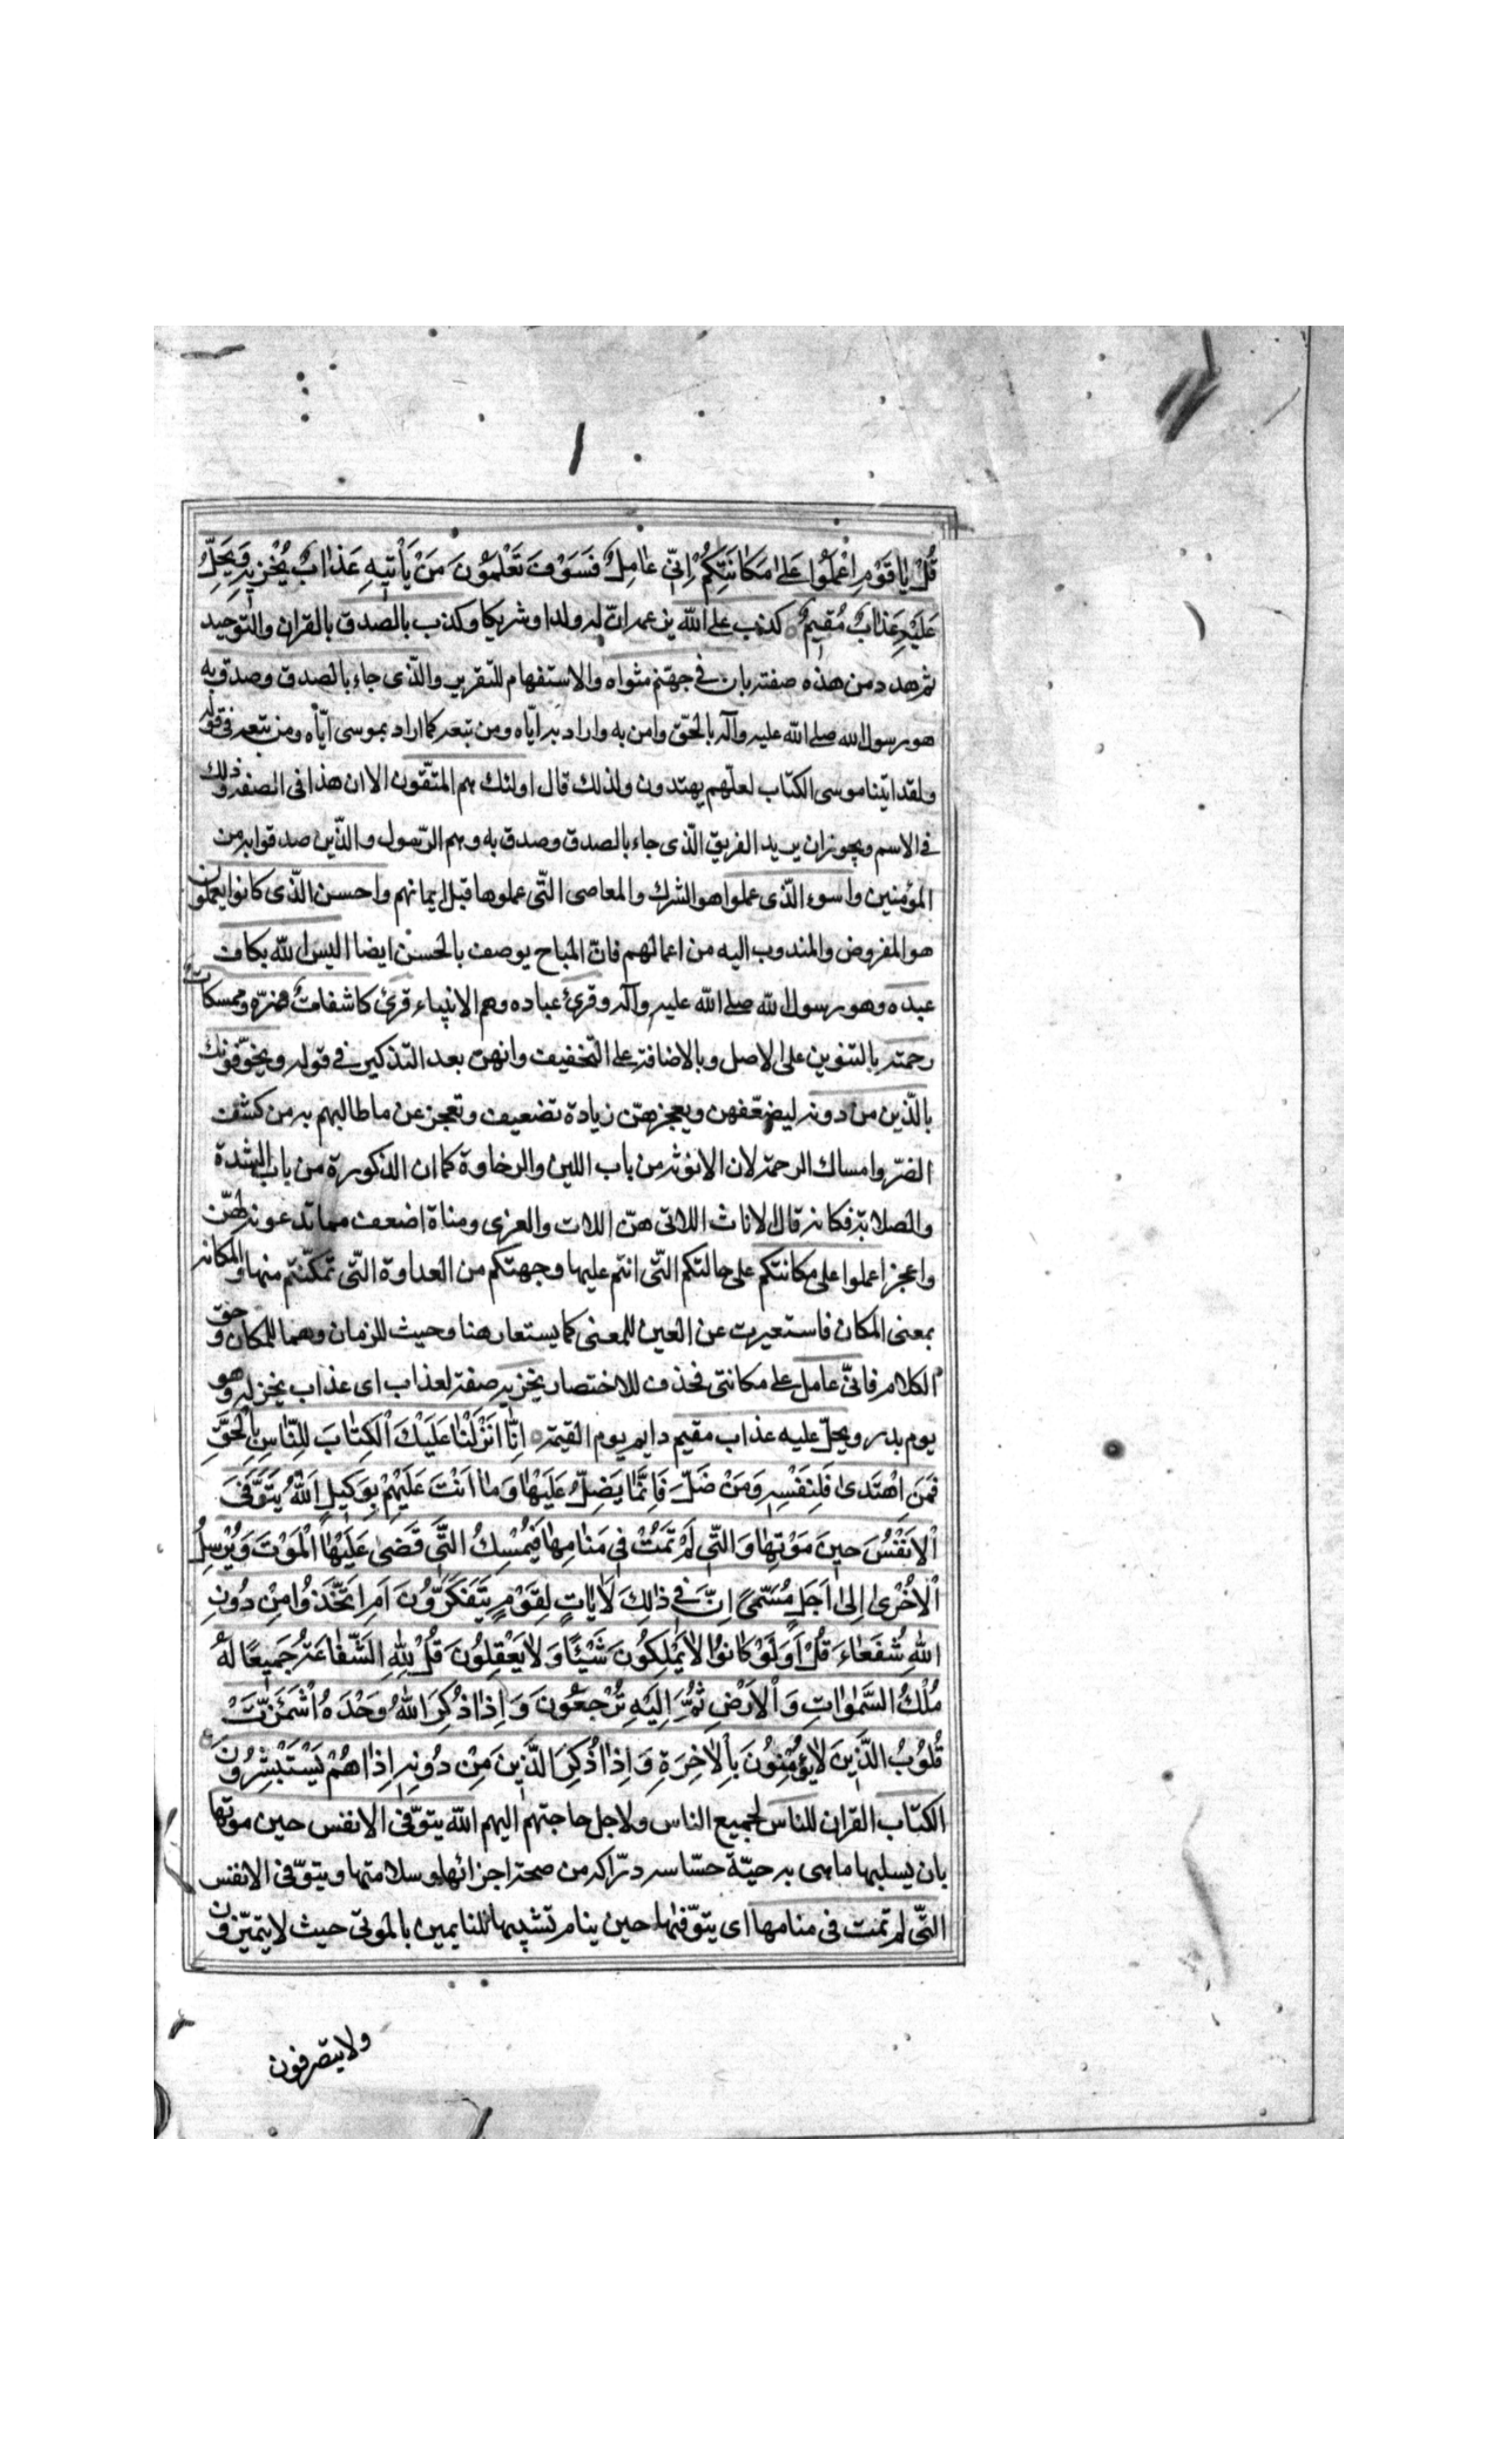 قُلْ يٰا قَوْمِ اعْمَلُوا عَلىٰ مَكٰانَتِكُمْ اِنّي عٰامِلٌ فَسَوْفَ تَعْلَمُونَ مَنْ يَأْتيهِ عَذٰابٌ يُخْزيهِ وَيَحِلُّ
عَلَيْهِ عَذٰابٌ مُقيمٌ كذب على الله بزعمه ان له ولدا وشريكا وكذب بالصدق بالقران والتوحيد
ثم هدد من هذه صفته بان في جهنم مثواه والاستفهام للتقرير والّذى جاء بالصدق وصدق به
هو رسول الله صلى الله عليه وآله بالحقّ وامن به واراد به ايّاه ومن تبعه كما اراد بموسى ايّاه ومن تبعه في قوله
ولقد اتينا موسى الكتاب لعلّهم يهتدون ولذلك قال اولئك هم المتّقون الا ان هذا فى الصفة وذلك
في الاسم ويجوز ان يريد الفريق الّذى جاء بالصدق وصدق به وهم الرّسول والّذين صدقوا به من
المؤمنين واسوء الّذى عملوا هو الشرك والمعاصى الّتى عملوها قبل ايمانهم واحسن الّذى كانوا يعملون
هو المفروض والمندوب اليه من اعمالهم فانّ المباح يوصف بالحسن ايضا اليس الله بكاف
عبده وهو رسول الله صلى الله عليه وآله وقرئ عباده وهم الانبياء قرئ كاشفاتٌ ضرّه وممسكاتٌ
رحمته بالتنوين على الاصل وبالاضافة على التخفيف وانهنّ بعد التذكير في قوله ويخوّفونك
بالّذين من دونه ليضعّفهن ويعجزهنّ زيادة تضعيف وتعجز عن ما طالبهم به من كشف
الضرّ وامساك الرحمة لان الانوثة من باب اللين والرخاوة كما ان الذكورة من باب الشدة
والصلابة فكانه قال لاناث اللاتى هنّ اللات والعزى ومناة اضعف مما تدعونه لهنّ
واعجز اعملوا على مكانتكم على حالتكم الّتى انتم عليها وجهتكم من العداوة الّتى تمكّنتم منها والمكانة
بمعنى المكان فاستعيرت عن العين للمعنى كما يستعار هنا وحيث للزمان وهما للمكان و حقّ
الكلام فانّي عامل على مكانتى فحذف للاختصار يخزيه صفة لعذاب اى عذاب يخزيه وهو
يوم بدر ويحلّ عليه عذاب مقيم دايم يوم القيمة اِنّٰا اَنْزَلْنٰا عَلَيْكَ الْكِتٰابَ لِلنّٰاسِ بِالْحَقِّ
فَمَنِ اهْتَدىٰ فَلِنَفْسِهِ وَمَنْ ضَلَّ فَاِنَّمٰا يَضِلُّ عَلَيْهٰا وَمٰا اَنْتَ عَلَيْهِمْ بِوَكيلٍ اَللّٰهُ يَتَوَفَّى
الْاَنْفُسَ حينَ مَوْتِهٰا وَالَّتي لَمْ تَمُتْ في مَنٰامِهٰا فَيُمْسِكُ الَّتي قَضىٰ عَلَيْهَا الْمَوْتَ وَيُرْسِلُ
الْاُخْرىٰ اِلىٰ اَجَلٍ مُسَمًّى اِنَّ في ذٰلِكَ لَاٰيٰاتٍ لِقَوْمٍ يَتَفَكَّرُونَ اَمِ اتَّخَذُوا مِنْ دُونِ
اللّٰهِ شُفَعٰاءَ قُلْ اَوَلَوْ كٰانُوا لٰا يَمْلِكُونَ شَيْئًا وَلٰا يَعْقِلُونَ قُلْ لِلّٰهِ الشَّفٰاعَةُ جَميعًا لَهُ
مُلْكُ السَّمٰوٰاتِ وَالْاَرْضِ ثُمَّ اِلَيْهِ تُرْجَعُونَ وَاِذٰا ذُكِرَ اللّٰهُ وَحْدَهُ اشْمَأَزَّتْ
قُلُوبُ الَّذينَ لٰا يُؤْمِنُونَ بِالْاٰخِرَةِ وَاِذٰا ذُكِرَ الَّذينَ مِنْ دُونِهِ اِذٰا هُمْ يَسْتَبْشِرُونَ
الكتاب القران للناس لجميع الناس ولاجل حاجتهم اليهم الله يتوّفى الانفس حين موتها
بان يسلبها ما هى به حيّة حسّاسه درّاكه من صحة اجزائها وسلامتها ويتوّفى الانفس
الّتى لم تمت فى منامها اى يتوّفيها حين ينام تشبيها للنايمين بالموتى حيث لا يتميّزون
ولا يتصرفون